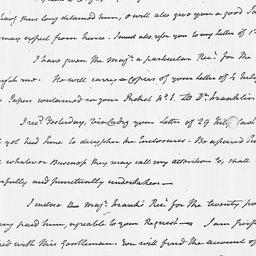 thing thus long detained him, & will also give you a good
may expect from hence. I must also refer you to my letter of 1
I have given the Majr. a particular Recr. for the
me. He will carry Copies of your letter of 4 July
Paper contained in your Packet No. 1. to Dr. Franklin
I recd. Yesterday, via Cadiz your letter of 29 Ult.
yet had time to decypher the Inclosures.
whatever Business they may call my attention to, shall
fully and punctually undertaken —
I endorse the Majr. Frank's Recr. for the twenty
paid him, agreeable to your Request —
with this Gentleman. You will find the account of